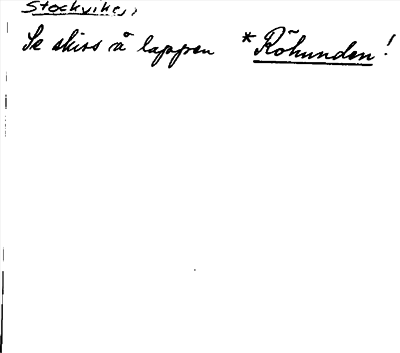 Stockviken,
Se skiss å lappen *Röhunden!